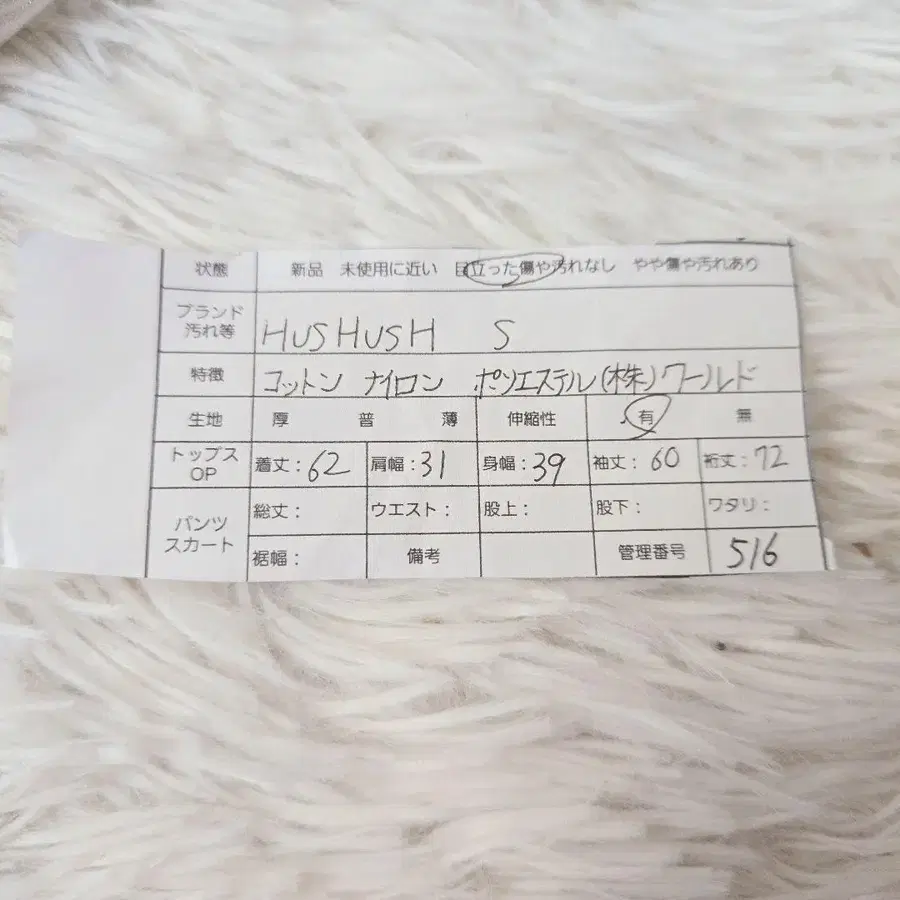 状態 新品 未使用に近い 目立った傷や汚れなし やや傷や汚れあり
ブランド 汚れ等 HUSHUSH S
特徴 コットン ナイロン ポリエステル (株)ワールド
生地 厚 普 薄 伸縮性 有 無
トップス OP 着丈:62 肩幅:31 身幅:39 袖丈:60 裄丈:72
パンツ スカート 総丈: ウエスト: 股上: 股下: ワタリ:
裾幅: 備考 管理番号 516